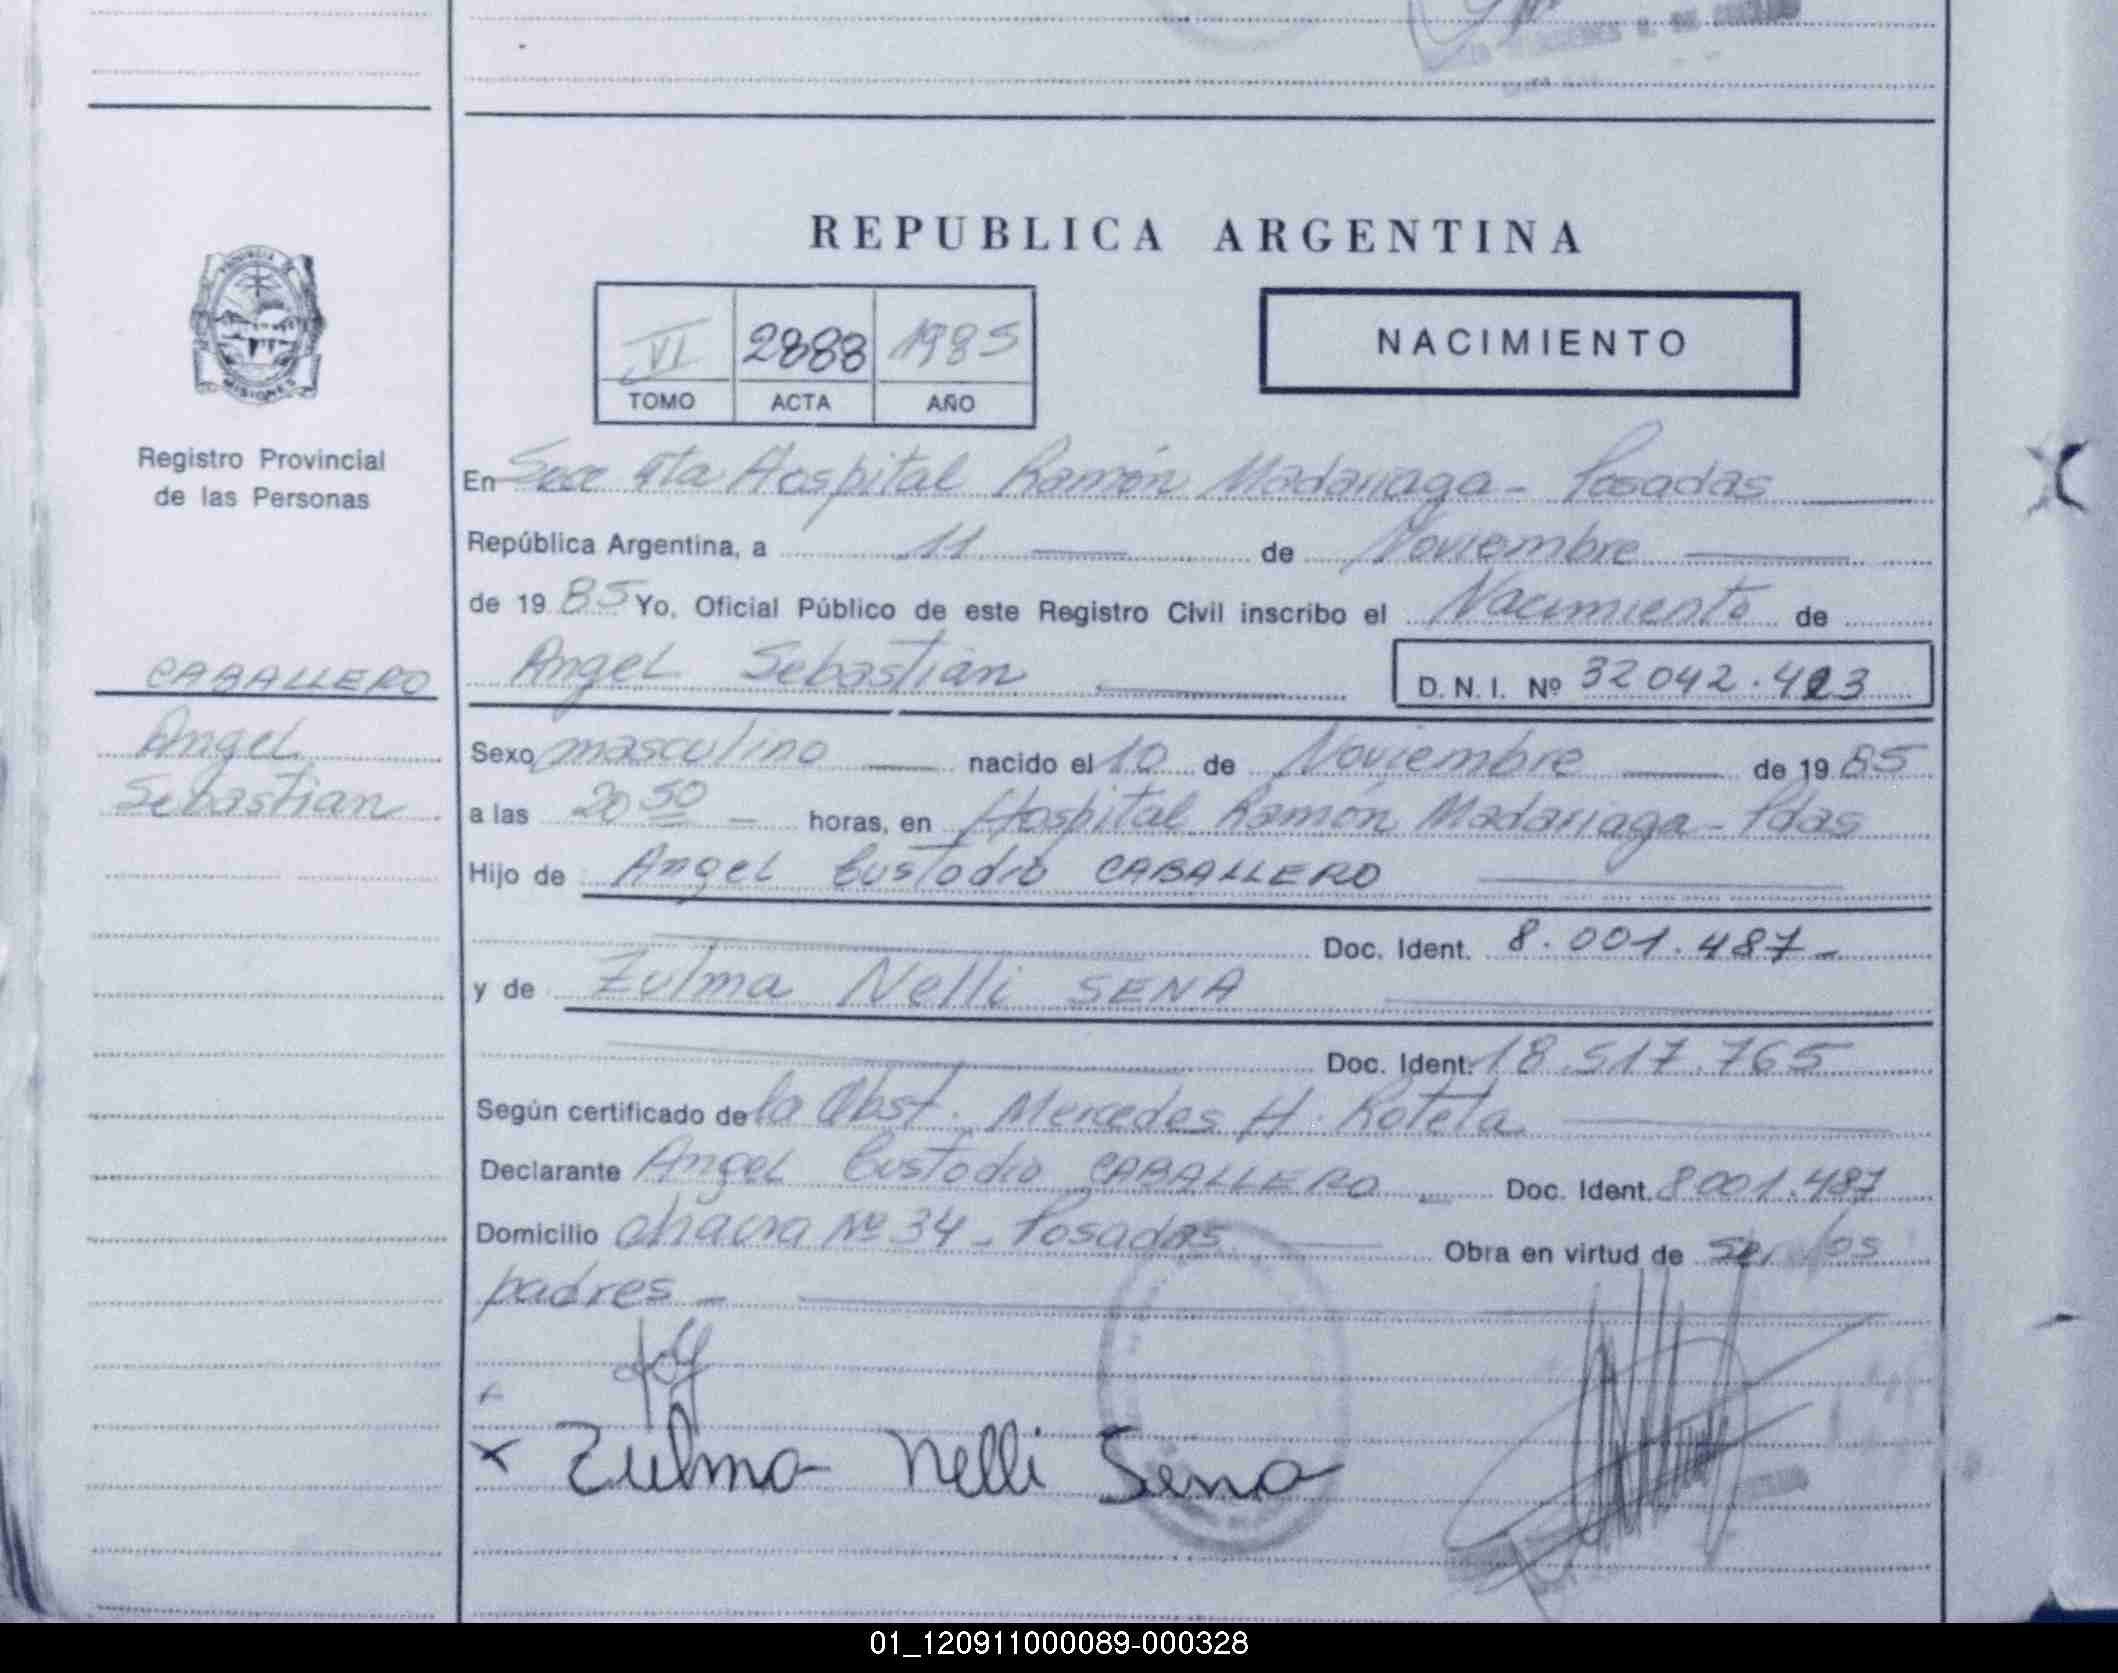 REPUBLICA ARGENTINA
PROVINCIA DE
MISIONES
Registro Provincial
de las Personas
VI 2888 1985
TOMO ACTA AÑO
NACIMIENTO
En Secc 4ta Hospital Ramón Madariaga - Posadas
República Argentina, a 11 de Noviembre
de 1985 Yo, Oficial Público de este Registro Civil inscribo el Nacimiento de
CABALLERO
Angel Sebastián
D.N.I. Nº 32 042.423
Angel
Sebastian
Sexo masculino nacido el 10 de Noviembre de 1985
a las 20 50 - horas, en Hospital Ramón Madariaga - Pdas
Hijo de Angel Custodio CABALLERO
Doc. Ident. 8.001.487 -
y de Zulma Nelli SENA
Doc. Ident. 18.517.765
Según certificado de la Obst. Mercedes H. Rotela
Declarante Angel Custodio CABALLERO - Doc. Ident. 8001.487
Domicilio chacra Nº 34 - Posadas Obra en virtud de ser los
padres -
x Zulma Nelli Sena
01_120911000089-000328